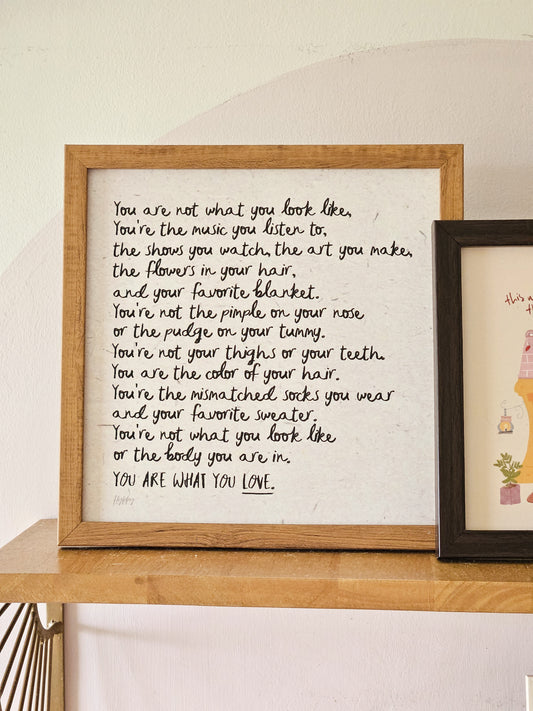 You are not what you look like,
You're the music you listen to,
the shows you watch, the art you make,
the flowers in your hair,
and your favorite blanket.
You're not the pimple on your nose
or the pudge on your tummy.
You're not your thighs or your teeth.
You are the color of your hair.
You're the mismatched socks you wear
and your favorite sweater.
You're not what you look like
or the body you are in.
YOU ARE WHAT YOU LOVE.
this